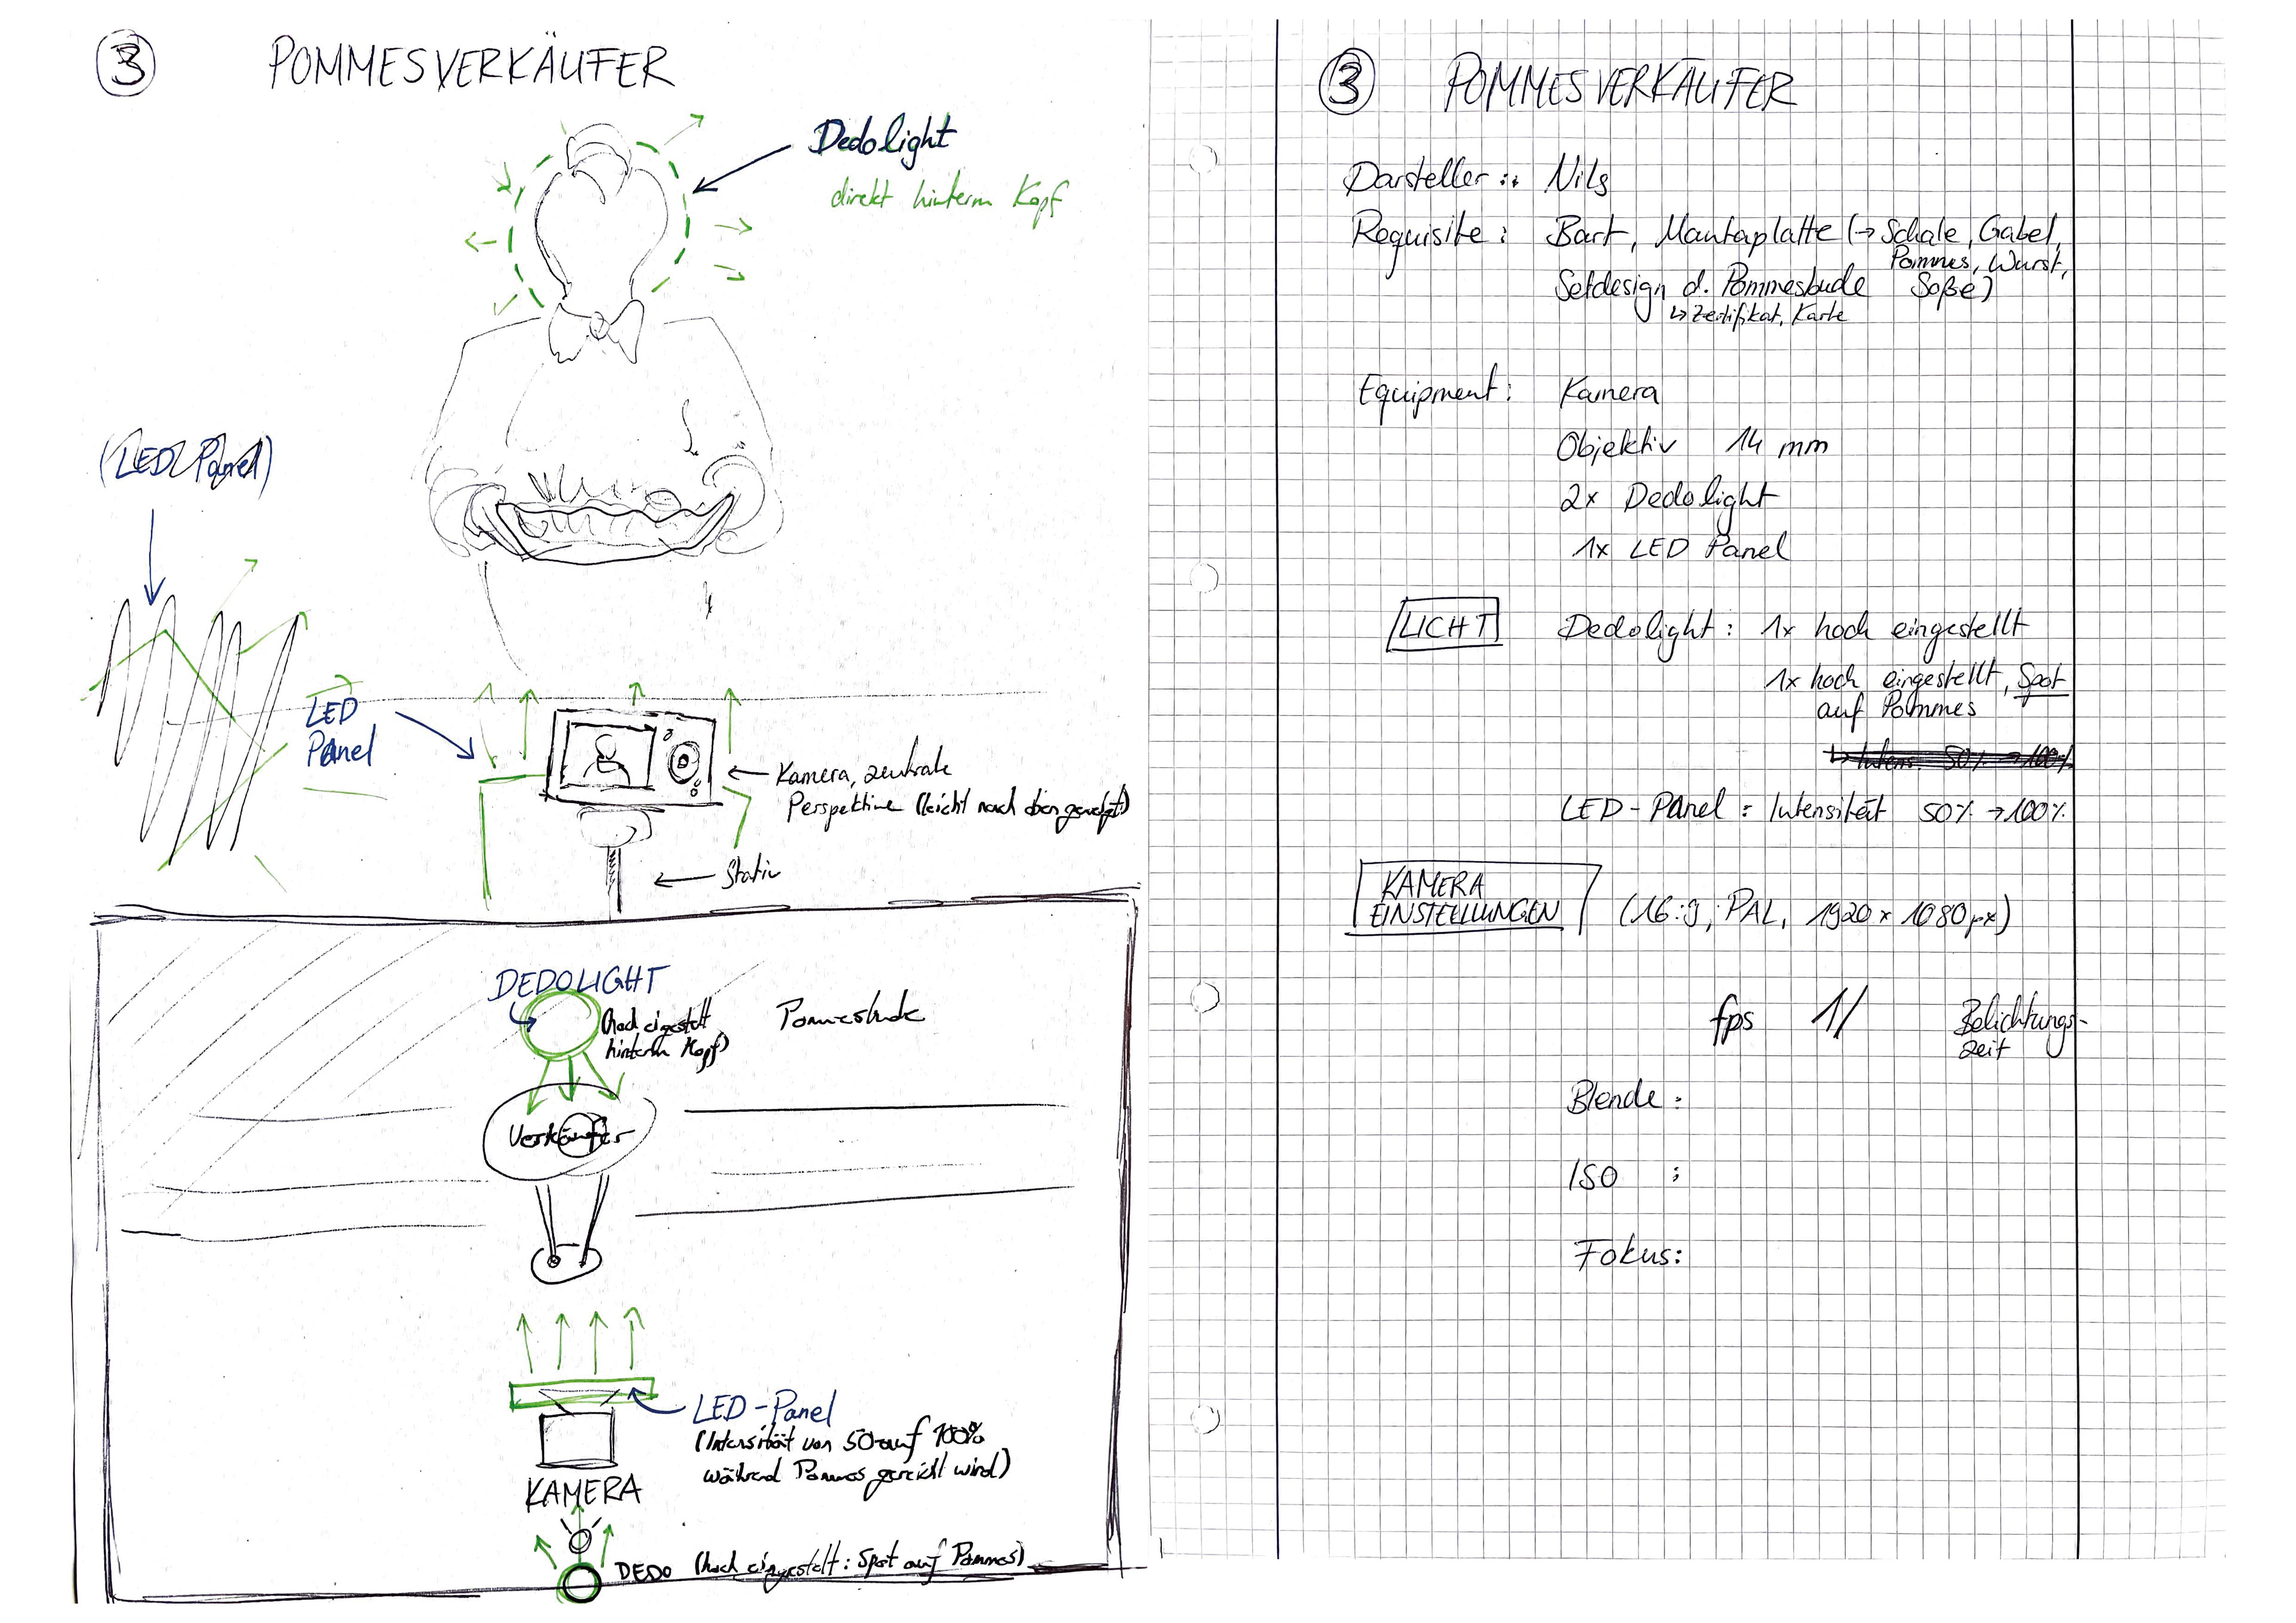 3 POMMESVERKÄUFER
Dedolight
direkt hinterm Kopf
(LED Panel)
LED
Panel
Kamera, zentrale
Perspektive (leicht nach oben geneigt)
Stativ
DEDOLIGHT
(hoch eigestelt
hinterm Kopf)
Pommesbude
Verkäufer
LED-Panel
(Intensität von 50 auf 100%
während Pommes gereicht wird)
KAMERA
DEDO (hoch eingestelt: Spot auf Pommes)
3 POMMESVERKÄUFER
Darsteller: Nils
Requisite: Bart, Mantaplatte (→ Schale, Gabel,
Pommes, Wurst,
Setdesign d. Pommesbude Soße)
↳ Zertifikat, Karte
Equipment: Kamera
Objektiv 14 mm
2x Dedolight
1x LED Panel
LICHT Dedolight: 1x hoch eingestellt
1x hoch eingestellt, Spot
auf Pommes
↳ Intens. 50% → 100%
LED-Panel: Intensität 50% → 100%
KAMERA
EINSTELLUNGEN (16:9, PAL, 1920 x 1080px)
fps 1/ Belichtungs-
zeit
Blende:
ISO :
Fokus: